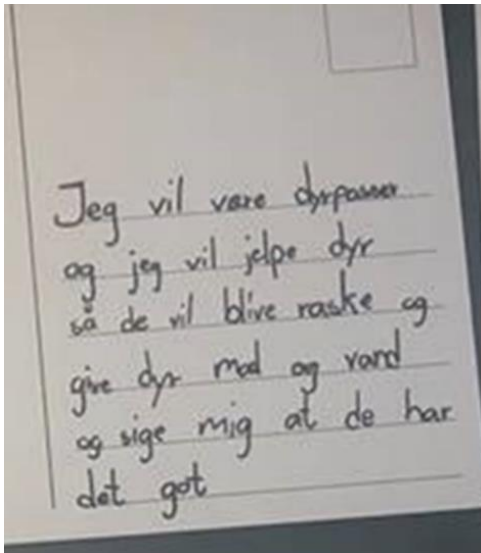 Jeg vil være dyrpasser
og jeg vil jelpe dyr
så de vil blive raske og
give dyr mad og vand
og sige mig at de har
det got